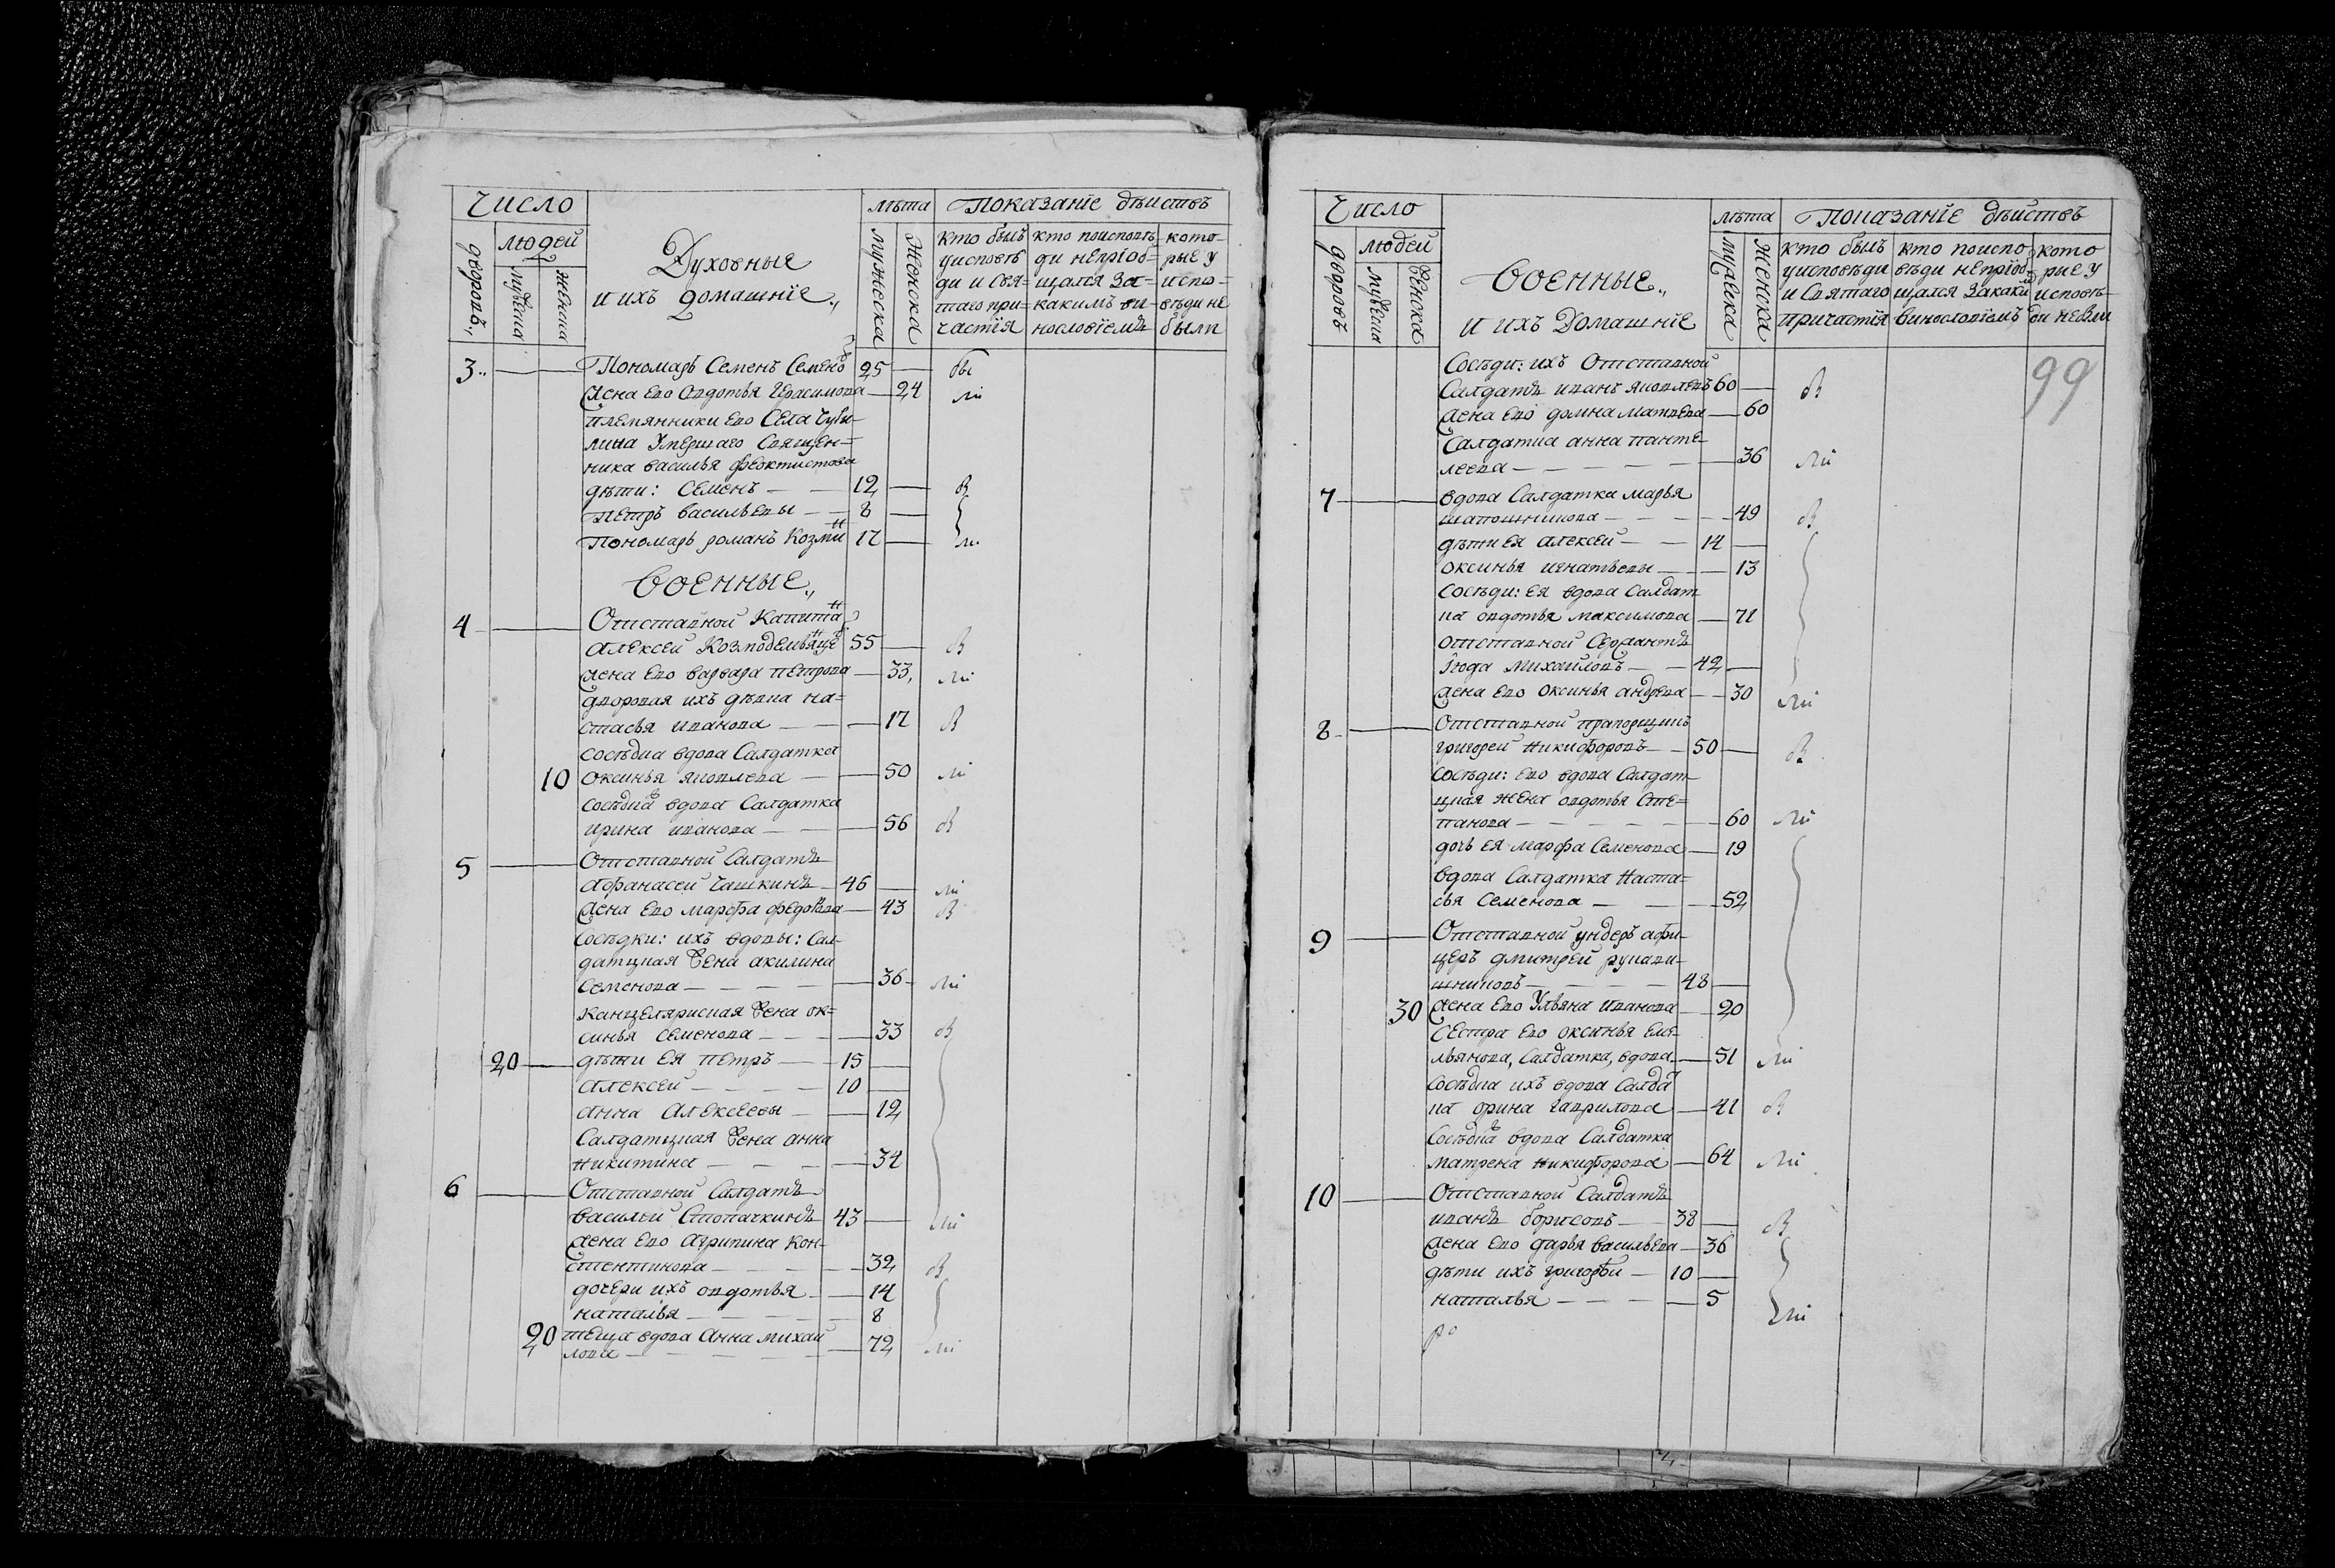 Число
людей
дворовъ
мужеска
женска
Духовные
и ихъ домашнїе
лѣта
мужеска
женска
Показанїе дѣиствъ
кто былъ
уисповѣ
ди и Свя=
таго при=
частїя
кто поисповѣ=
ди непрїоб=
щался За=
какимъ ви=
нословїемъ
кото=
рые у
испо=
вѣди не
были
3 Пономарь Семенъ Семено 25 бы
Жена Ево Овдотья Герасимова 24 ли
племянники Ево Села
Умершаго Священ=
ника василья феоктистова
дѣти: Семенъ 12 в
Петръ васильевы 8
Пономарь романъ Козми н 17 ли
Военные
4 Отставной Капита н
Алексей 55 в
Жена Ево варвара петрова 33 ли
дворовая ихъ дѣвка на=
стасья иванова 17 в
сосѣдка вдова Салдатка
10 оксинья яковлева 50 ли
сосѣдка вдова Салдатка
ирина иванова 56 в
5 Отставной Салдатъ
Афанасей Чашкинъ 46 ли
Жена Ево марфа федотова 43 в
Сосѣдки: ихъ вдовы: Сал=
датцкая Жена акилина
Семенова 36 ли
Канцеляриская Жена ок=
синья Семенова 33 в
20 дѣти Ея Петръ 15
Алексей 10
анна Алексеевы 12
Салдатцкая Жена анна
никитина 34
6 Отставной Салдатъ
василей 43 ли
Жена Ево Агрипина Кон=
стентинова 32 в
дочери ихъ овдотья 14
наталья 8
20 теща вдова Анна михаи
лова 72 ли
Число
людей
дворовъ
мужеска
женска
Военные
и ихъ домашнїе
лѣта
мужеска
женска
Показанїе дѣиствъ
кто былъ
уисповѣди
и Святаго
причастїя
кто поиспо
вѣди непрїоб=
щался Закаки м
винословїемъ
кото
рые у
исповѣ
ди небыли
99
Сосѣди: ихъ Отставной
Салдатъ иванъ яковлевъ 60 в
Жена Ево домна матвева 60
Салдатка анна панте
леева 36 ли
7 вдова Салдатка марья
шапошникова 49 в
дѣти Ея алексей 14
оксинья игнатьевы 13
Сосѣди: Ея вдова Салдат
ка овдотья максимова 71
отставной Сержантъ
Июда Михаиловъ 42
Жена Ево Оксинья андрева 30 ли
8 Отставной прапорщикъ
григорей Никифоровъ 50 в
сосѣди: Ево вдова Салдат
цкая жена овдотья Сте=
панова 60 ли
дочь Ея марфа Семенова 19
вдова Салдатка Наста=
сья Семенова 52
9 Отставной ундеръ афи=
церъ дмитрей рукави=
шниковъ 48
30 Жена Ево Ульяна иванова 20
Сестра Ево оксинья Еме=
льянова, Салдатка, вдова 51 ли
Сосѣдка ихъ вдова Салда т
ка орина гаврилова 41 в
Сосѣдка вдова Салдатка
матрена никифорова 64 ли
10 Отставной Салдатъ
иванъ борисовъ 38 в
Жена Ево дарья васильева 36
дѣти ихъ григорей 10
наталья 5 ли